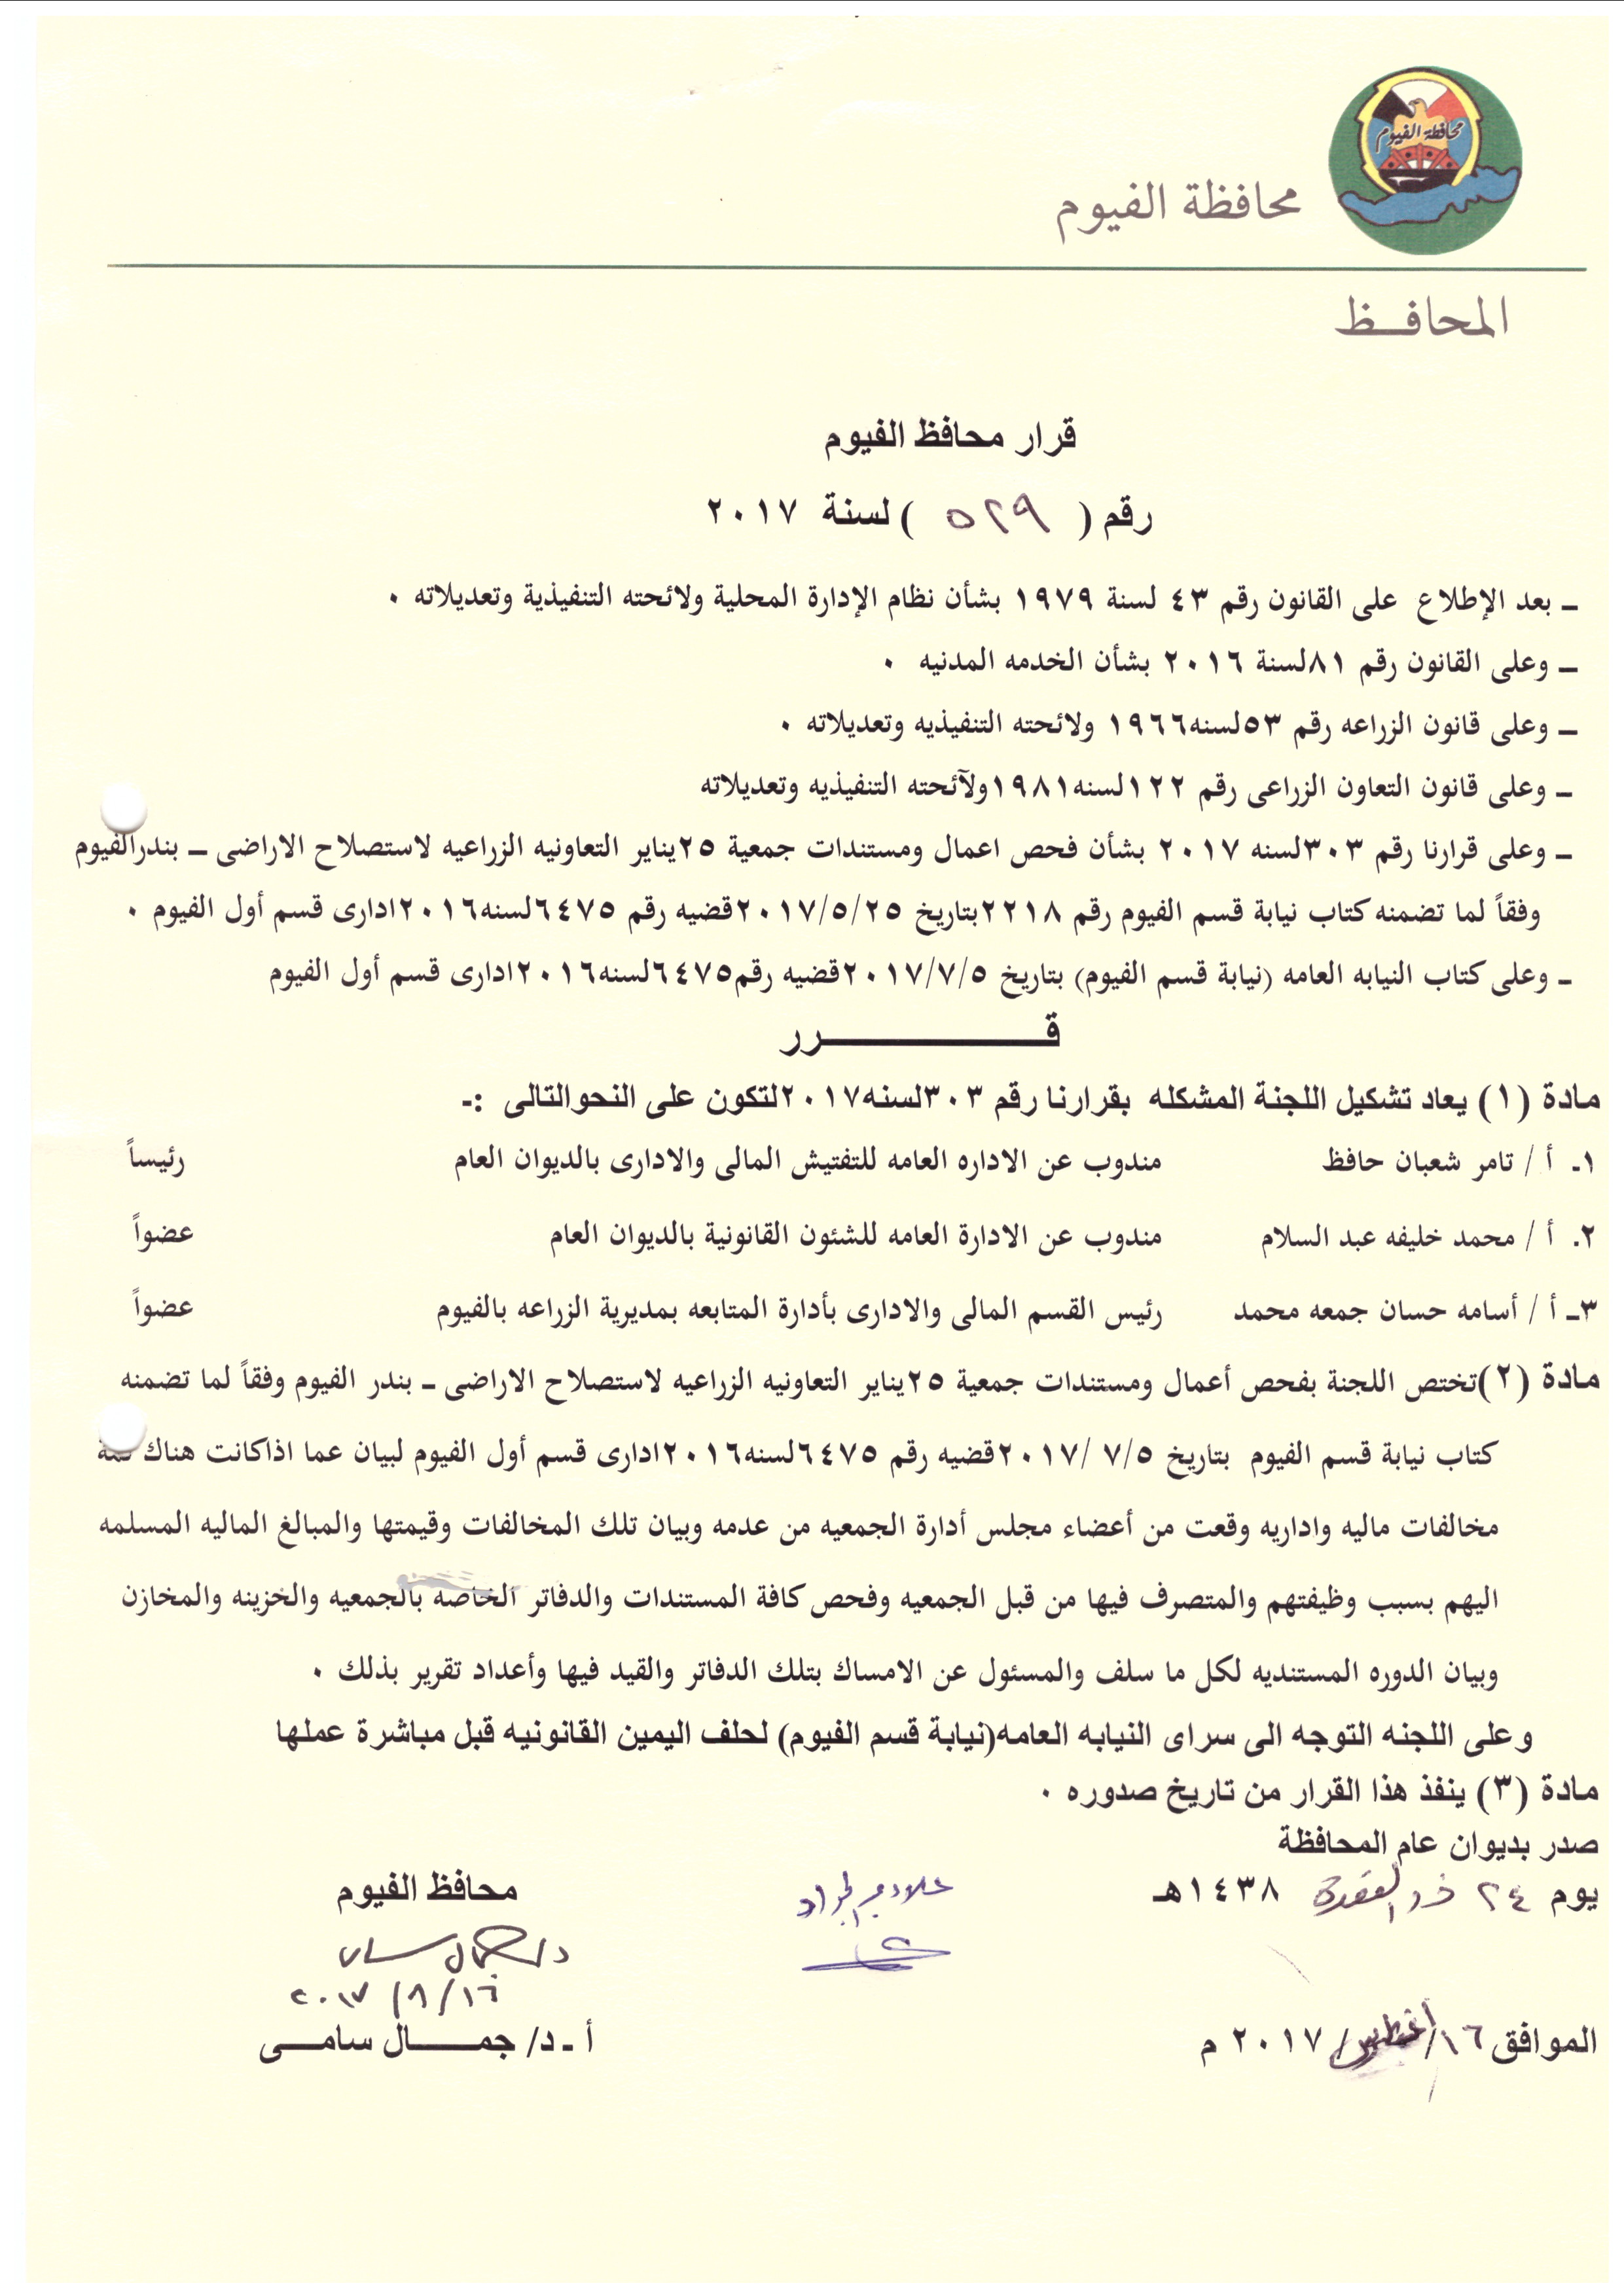 محافظة الفيوم
محافظة الفيوم
المحافــظ
قرار محافظ الفيوم
رقم ( ٥٢٩ ) لسنة ٢٠١٧
ــ بعد الإطلاع على القانون رقم ٤٣ لسنة ١٩٧٩ بشأن نظام الإدارة المحلية ولائحته التنفيذية وتعديلاته ٠
ــ وعلى القانون رقم ٨١لسنة ٢٠١٦ بشأن الخدمه المدنيه ٠
ــ وعلى قانون الزراعه رقم ٥٣لسنه١٩٦٦ ولائحته التنفيذيه وتعديلاته ٠
ــ وعلى قانون التعاون الزراعى رقم ١٢٢لسنه١٩٨١ولآئحته التنفيذيه وتعديلاته
ــ وعلى قرارنا رقم ٣٠٣لسنه ٢٠١٧ بشأن فحص اعمال ومستندات جمعية ٢٥يناير التعاونيه الزراعيه لاستصلاح الاراضى ــ بندرالفيوم
وفقاً لما تضمنه كتاب نيابة قسم الفيوم رقم ٢٢١٨بتاريخ ٢٠١٧/٥/٢٥قضيه رقم ٦٤٧٥لسنه٢٠١٦ادارى قسم أول الفيوم ٠
ــ وعلى كتاب النيابه العامه (نيابة قسم الفيوم) بتاريخ ٢٠١٧/٧/٥قضيه رقم٦٤٧٥لسنه٢٠١٦ادارى قسم أول الفيوم
قـــــــــــــرر
مادة (١) يعاد تشكيل اللجنة المشكله بقرارنا رقم ٣٠٣لسنه٢٠١٧لتكون على النحوالتالى :ـ
١ـ أ / تامر شعبان حافظ مندوب عن الاداره العامه للتفتيش المالى والادارى بالديوان العام رئيساً
٢. أ / محمد خليفه عبد السلام مندوب عن الادارة العامه للشئون القانونية بالديوان العام عضواً
٣ـ أ / أسامه حسان جمعه محمد رئيس القسم المالى والادارى بأدارة المتابعه بمديرية الزراعه بالفيوم عضواً
مادة (٢)تختص اللجنة بفحص أعمال ومستندات جمعية ٢٥يناير التعاونيه الزراعيه لاستصلاح الاراضى ــ بندر الفيوم وفقاً لما تضمنه
كتاب نيابة قسم الفيوم بتاريخ ٢٠١٧/ ٧/٥قضيه رقم ٦٤٧٥لسنه٢٠١٦ادارى قسم أول الفيوم لبيان عما اذاكانت هناك ثمة
مخالفات ماليه واداريه وقعت من أعضاء مجلس أدارة الجمعيه من عدمه وبيان تلك المخالفات وقيمتها والمبالغ الماليه المسلمه
اليهم بسبب وظيفتهم والمتصرف فيها من قبل الجمعيه وفحص كافة المستندات والدفاتر الخاصه بالجمعيه والخزينه والمخازن
وبيان الدوره المستنديه لكل ما سلف والمسئول عن الامساك بتلك الدفاتر والقيد فيها وأعداد تقرير بذلك ٠
وعلى اللجنه التوجه الى سراى النيابه العامه(نيابة قسم الفيوم) لحلف اليمين القانونيه قبل مباشرة عملها
مادة (٣) ينفذ هذا القرار من تاريخ صدوره ٠
صدر بديوان عام المحافظة
يوم ٢٤ ذو القعدة ١٤٣٨هـ
محافظ الفيوم
د/ جمال سامى
٢٠١٧/٨/١٦
الموافق ١٦/ أغسطس/ ٢٠١٧ م
أ ـ د/ جمـــــال سامـــى